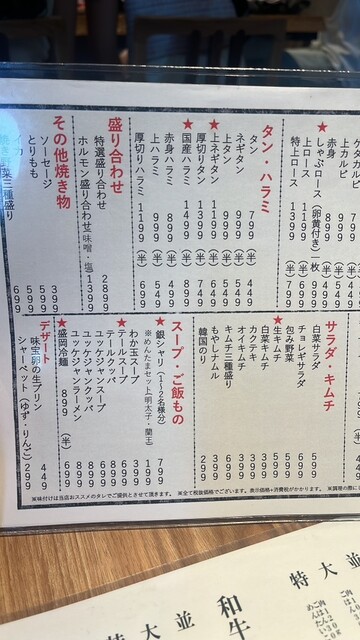 ゲタカルビ
上カルビ
赤身
★しゃぶロース(卵黄付き)一枚
上ロース 1199 (半) 699
特上ロース 1399 (半) 799
タン・ハラミ
タン 799 (半) 449
ネギタン 999 (半) 549
上タン 999 (半) 549
★上ネギタン 1199 (半) 649
★厚切りタン 1199 (半) 649
★国産ハラミ 1499 (半) 849
赤身ハラミ 899 (半) 499
上ハラミ 999 (半) 549
厚切りハラミ 1199 (半) 649
盛り合わせ
特選盛り合わせ 2899
ホルモン盛り合わせ(味噌・塩) 1399
その他焼き物
ソーセージ 399
とりもも 599
イカ 599
焼き野菜三種盛り 699
サラダ・キムチ
白菜サラダ 599
チョレギサラダ 699
包み野菜 599
★生キムチ
白菜キムチ 399
カクテキ 399
オイキムチ 399
キムチ三種盛り 699
もやしナムル 399
韓国のり 299
スープ・ご飯もの
★銀シャリ(1〜2名様分) 799
※めんたまセット(明太子・蘭王) 199
わか玉スープ 399
★テールスープ 699
テールクッパ 899
ユッケジャンスープ 699
ユッケジャンクッパ 899
ユッケジャンラーメン 899
★盛岡冷麺 899 (半) 699
デザート
味宝卵の生プリン 449
シャーベット(ゆず・りんご) 299
※味付けは当店おススメのタレでご提供とさせて頂きます。 ※全て税抜価格でございます。表示価格+消費税がかかります。
特大並
和牛
特大並